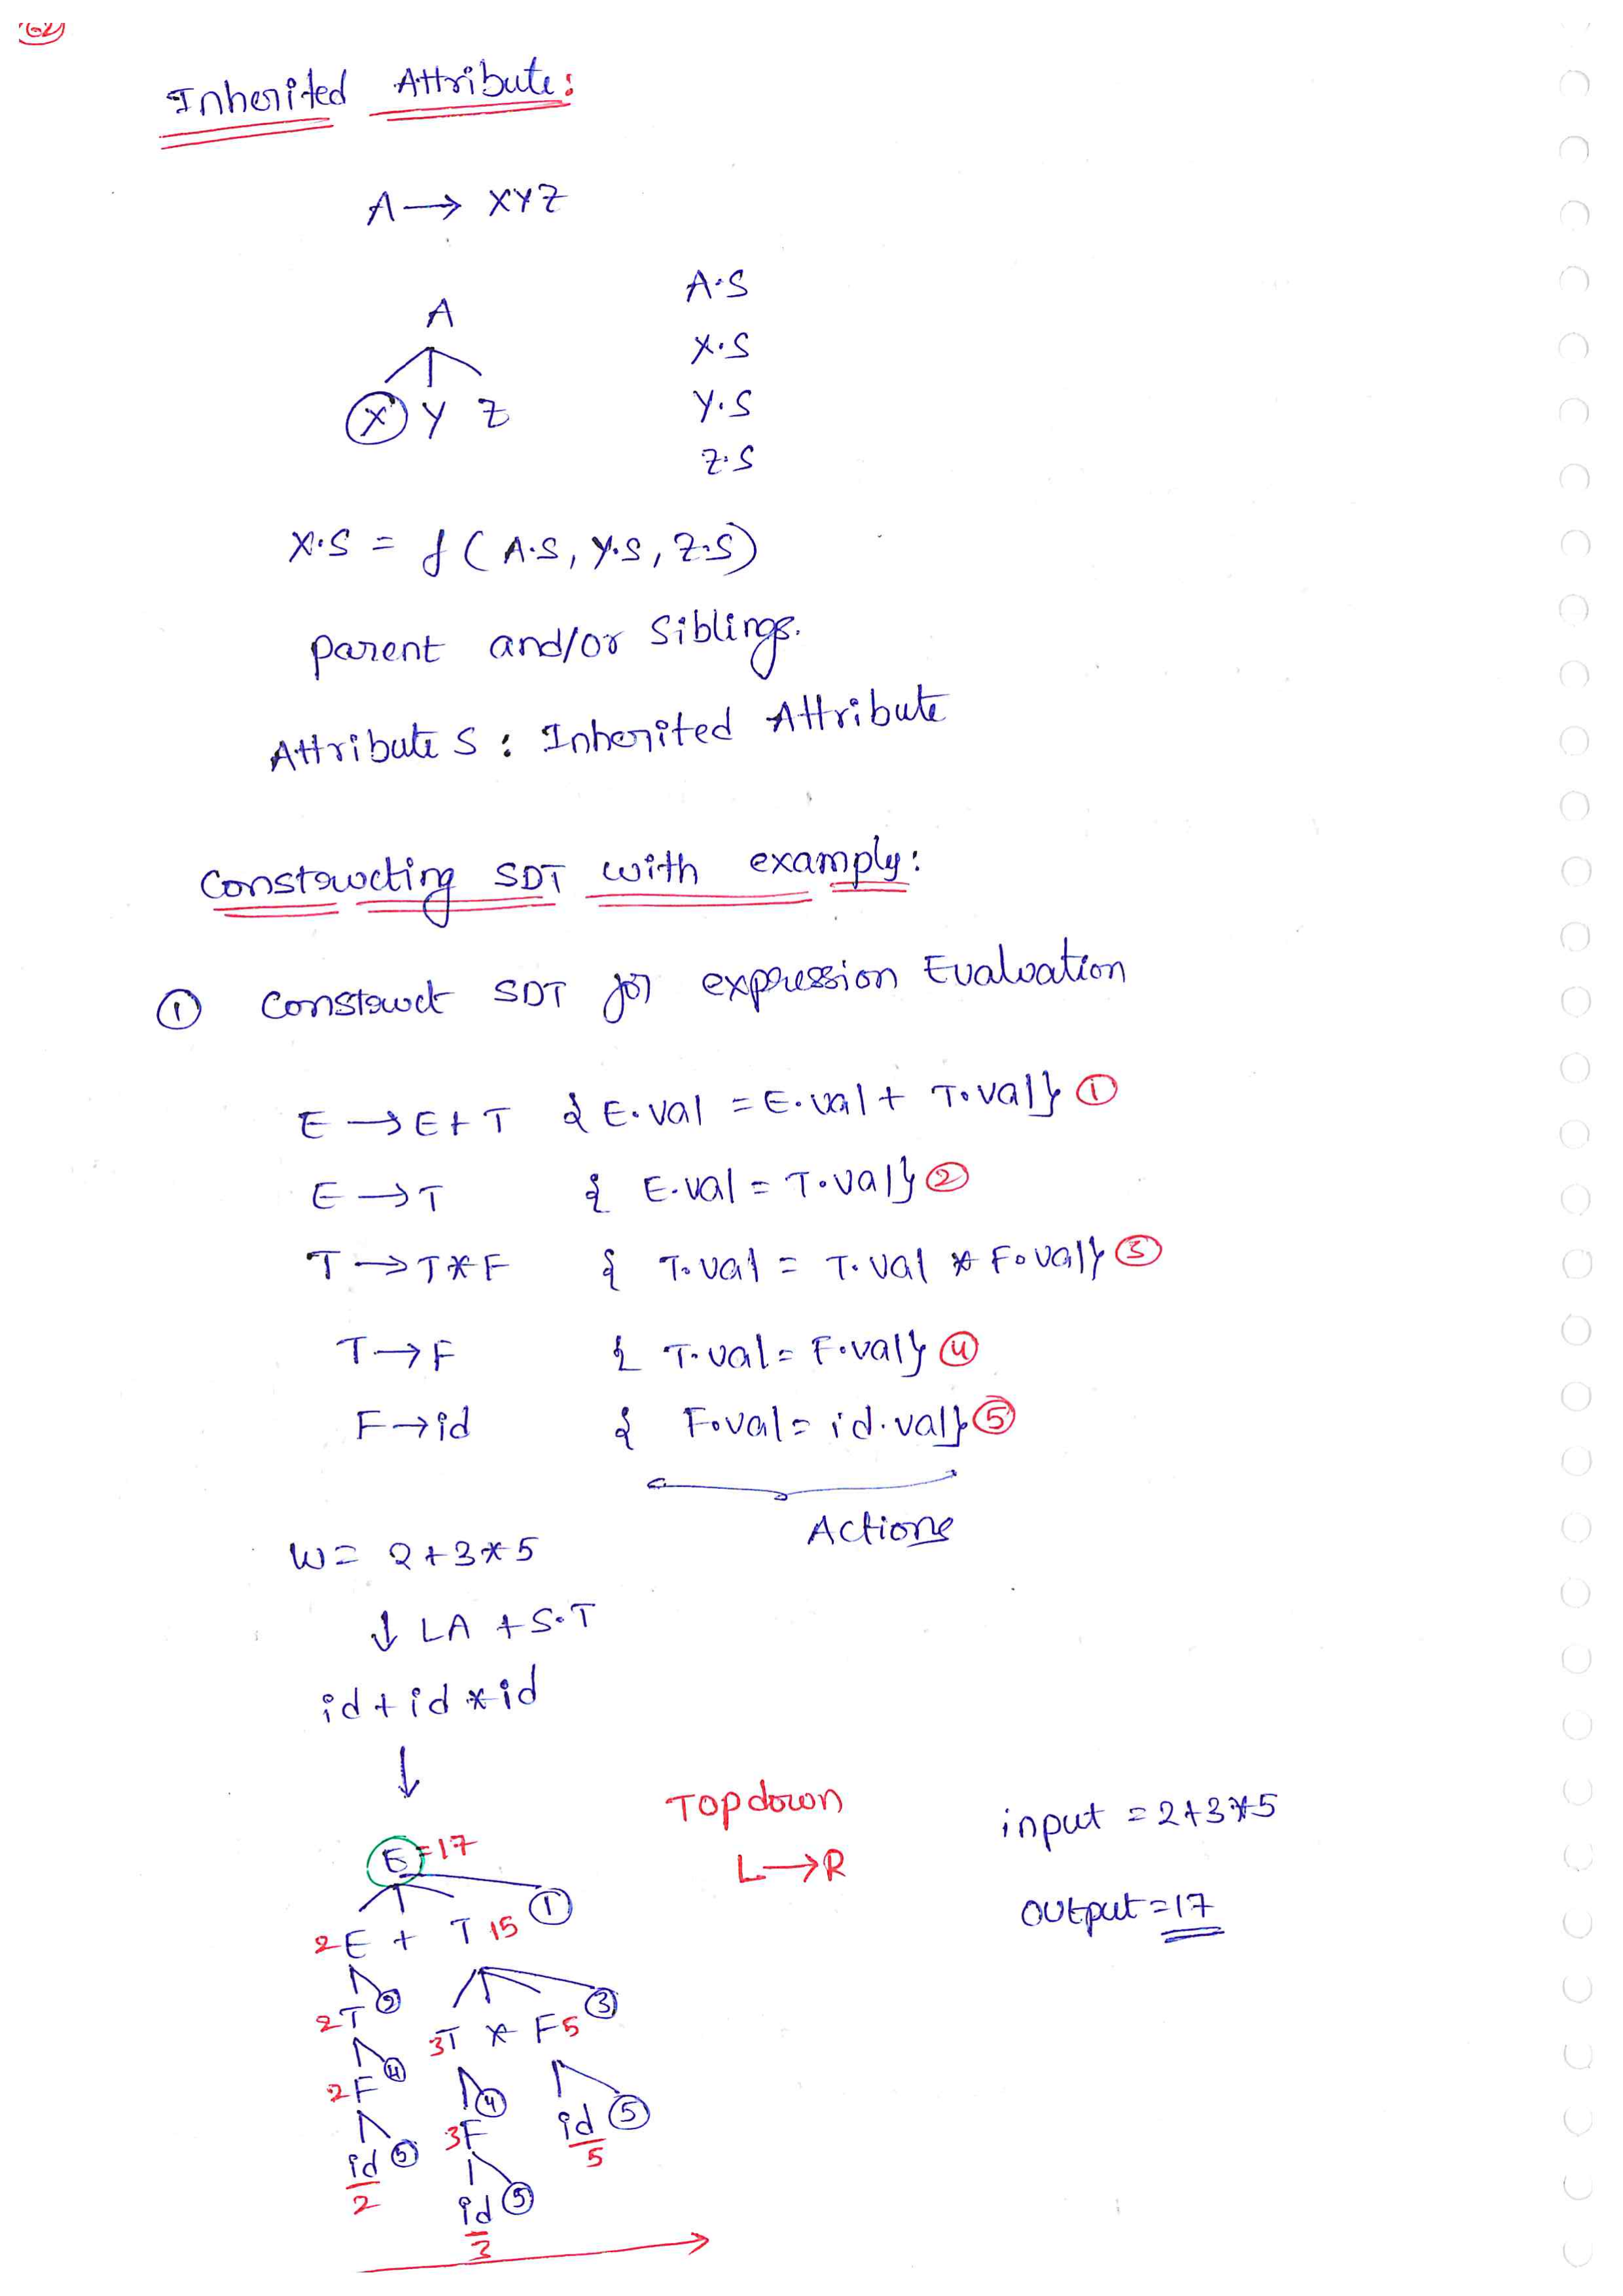 62
Inherited Attribute:
A → XYZ
A
X Y Z
A.S
X.S
Y.S
Z.S
X.S = f ( A.S, Y.S, Z.S)
parent and/or siblings.
Attribute S : Inherited Attribute
Constructing SDT with examply:
① Construct SDT for expression Evaluation
E → E + T { E.val = E.val + T.val} ①
E → T { E.val = T.val} ②
T → T * F { T.val = T.val * F.val} ③
T → F { T.val = F.val} ④
F → id { F.val = id.val} ⑤
Actions
W = 2+3*5
↓ LA + S.T
id + id * id
↓
Topdown
L → R
input = 2+3*5
output = 17
E = 17
①
2 E + T 15
2 T ② 3 T * F 5 ③
2 F ④ ④ id ⑤
3 F 5
id ⑤
2 id ⑤
3